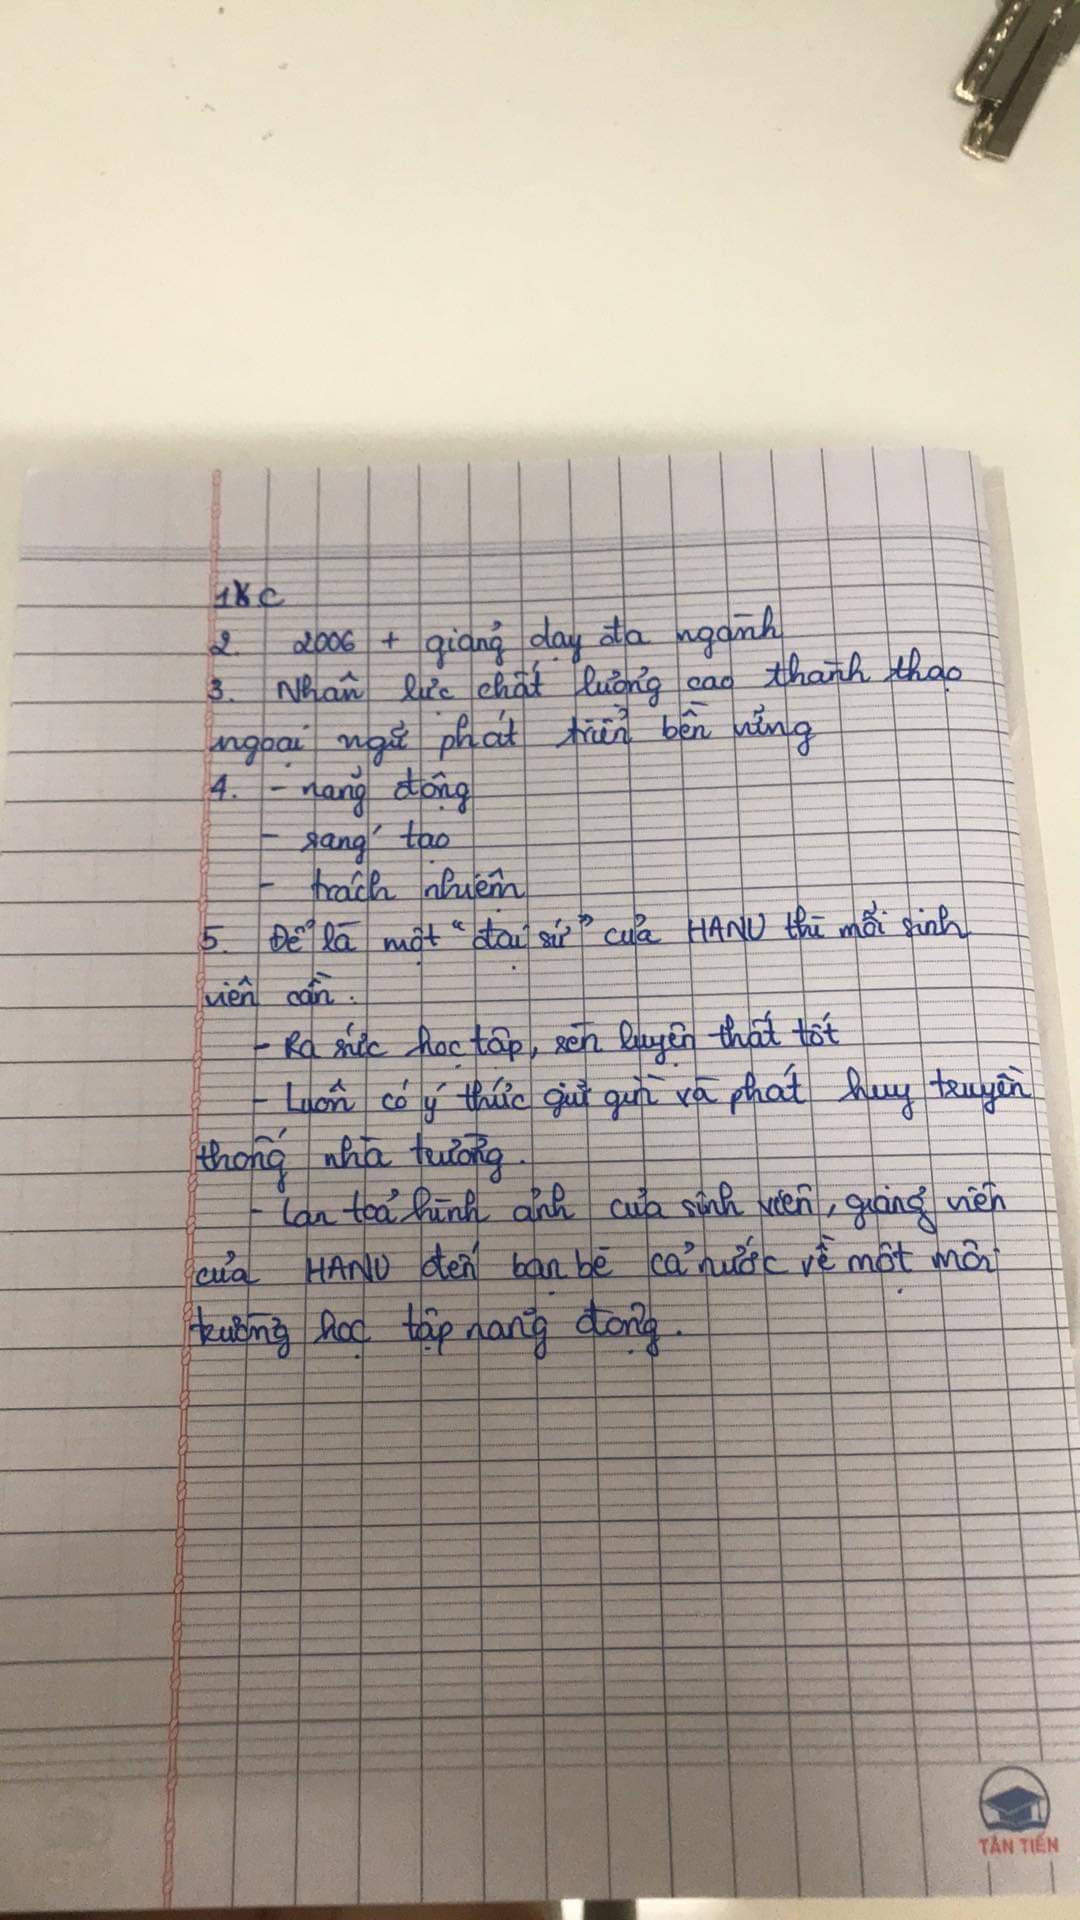 1 C
2. 2006 + giảng dạy đa ngành
3. Nhân lực chất lượng cao thành thạo
ngoại ngữ phát triển bền vững
4. - năng động
- sáng tạo
- trách nhiệm
5. Để là một "đại sứ" của HANU thì mỗi sinh
viên cần.
- Ra sức học tập, rèn luyện thật tốt
- Luôn có ý thức giữ gìn và phát huy truyền
thống nhà trường.
- Lan toả hình ảnh của sinh viên, giảng viên
của HANU đến bạn bè cả nước về một môi
trường học tập năng động.
TÂN TIẾN